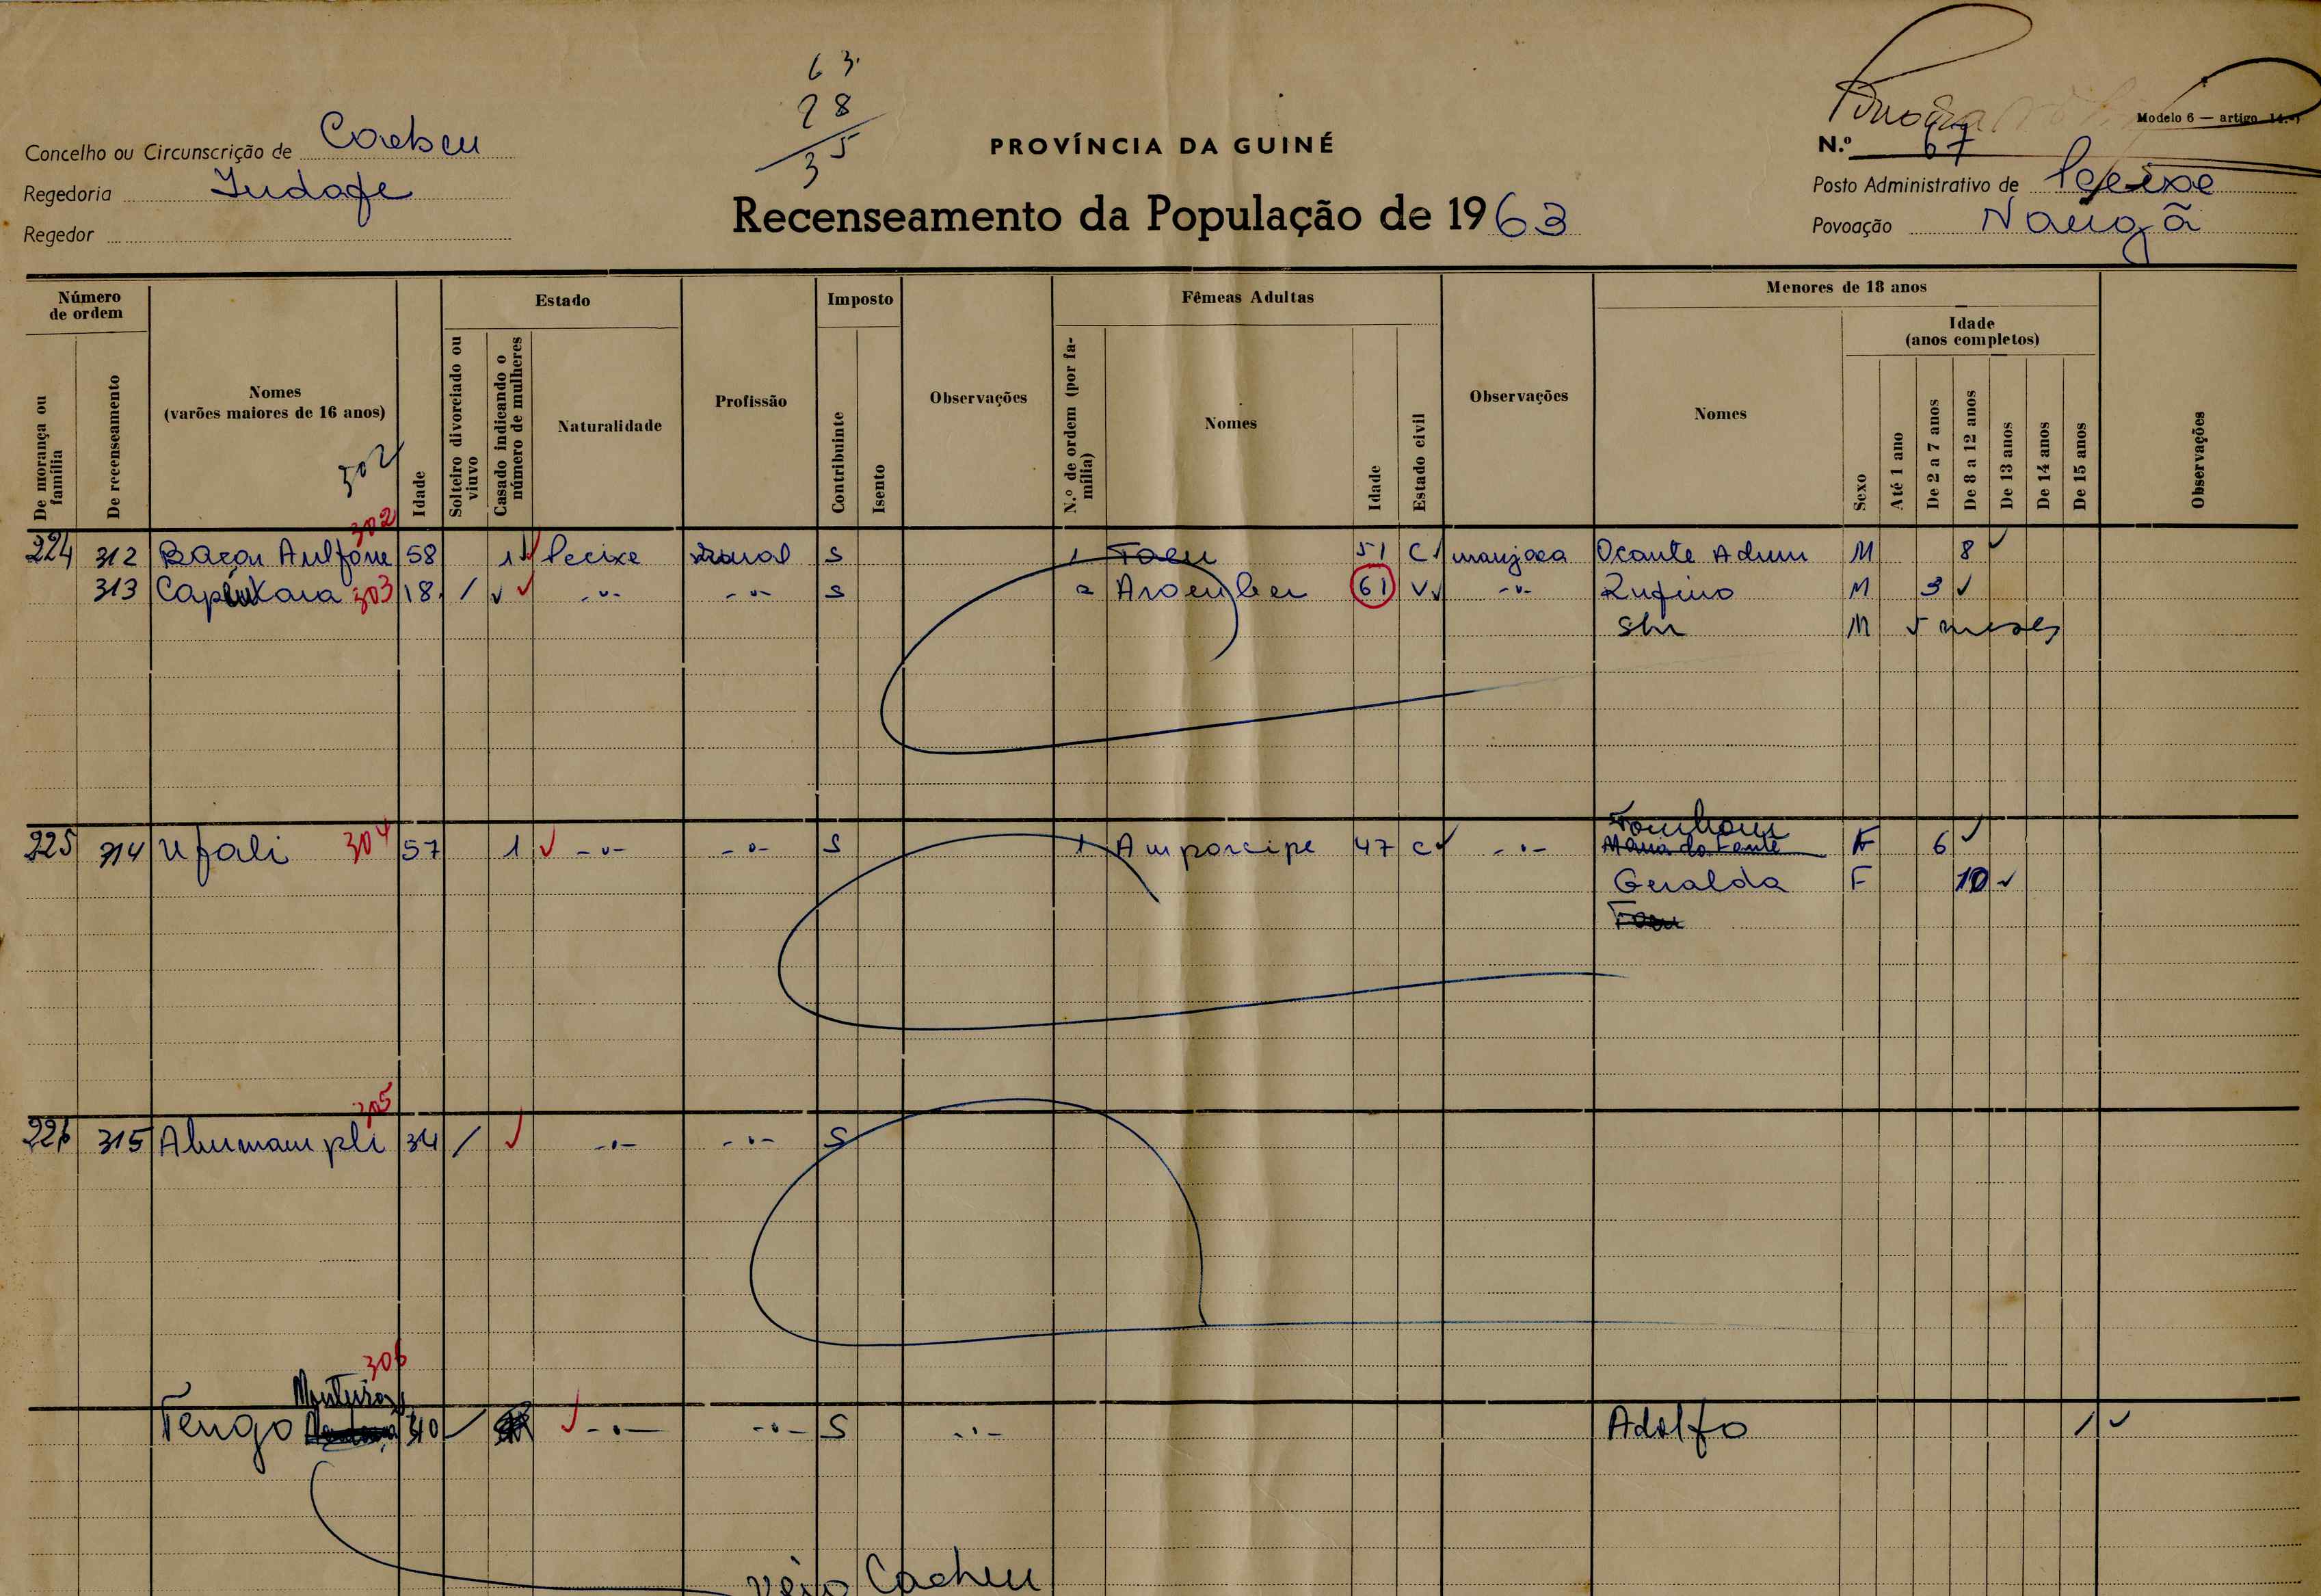 63
28
35
Concelho ou Circunscrição de Cacheu
PROVÍNCIA DA GUINÉ
Modelo 6 — artigo 14.º
N.º 67
Regedoria Iudafe
Posto Administrativo de Pecixe
Regedor
Recenseamento da População de 1963
Povoação Naugã
Número de ordem
De morança ou família
De recenseamento
Nomes
(varões maiores de 16 anos)
302
Idade
Estado
Solteiro divorciado ou viuvo
Casado indicando o número de mulheres
Naturalidade
Profissão
Imposto
Contribuinte
Isento
Observações
Fêmeas Adultas
N.º de ordem (por família)
Nomes
Idade
Estado civil
Observações
Menores de 18 anos
Nomes
Sexo
Idade
(anos completos)
Até 1 ano
De 2 a 7 anos
De 8 a 12 anos
De 13 anos
De 14 anos
De 15 anos
Observações
302
224 312 58 1 Pecixe rural S 1 Taeu 51 C manjaca Ocante M 8
313 303 18 / -"- -"- S 2 61 V -"- Rufino M 3
M 5 meses
225 314 Ufali 304 57 1 -"- -"- S 1 Amparcipe 47 C -"- Maria da Fante F 6
Geralda F 10
Taeu
305
226 315 34 / -"- -"- S
306
Monteiro
Tengo 30 / -"- -"- S -"- Adolfo /
Cacheu